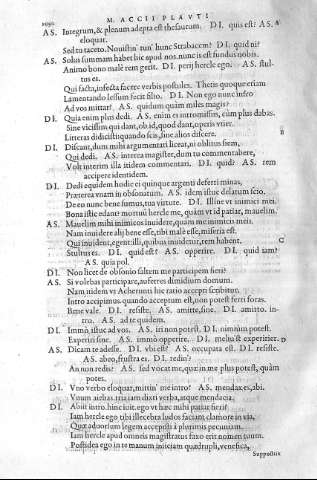 1090 M. ACCII PLAVTI
AS. Integrum, & plenum adepta est thesaurum. DI. quis est? AS. A
eloquar.
Sed tu taceto. Novistin' tun' hunc Strabacem? DI. quid ni?
AS. Solus summam habet hic apud nos: nunc is est fundus nobis.
Animo bono male rem gerit. DI. perij hercle ego. AS. stul-
tus es.
Qui facta, infecta facere verbis postules. Thetis quoque etiam
Lamentando lessum fecit filio. DI. Non ego nunc infro
Ad vos mittar? AS. quidum quam miles magis?
DI. Quia enim plus dedi. AS. enim es intromissus, cum plus dabas.
Sine vicissim qui dant, ob id, quod dant, operis utier.
Literas didicisti: quando scis, sine alios discere. B
DI. Discant, dum mihi argumentari liceat, ni oblitus siem,
Qui dedi. AS. interea magister, dum tu commentabere,
Volt interim illa itidem commentari. DI. quid? AS. rem
accipere identidem.
DI. Dedi equidem hodie ei quinque argenti deferri minas,
Præterea unam in obsonatum. AS. idem istuc delatum scio.
De eo nunc bene sumus, tua virtute. DI. Illine ut inimici mei
Bona istic edant? mortuum hercle me, quàm ut id patiar, mavelim.
AS. Mavelim mihi inimicos invidere, quàm me inimicis meis.
Nam invidere alij bene esse, tibi malè esse, miseria est.
Qui invident, egent: illi, quibus invidetur, rem habent. C
Stultus es. DI. quid est? AS. opperire. DI. quid iam?
AS. quia pol
DI. Non licet de obsonio saltem me participem fieri?
AS. Si volebas participare, auferres dimidium domum.
Nam itidem ut Acherunti hic ratio accepti scribitur.
Intro accipimus: quando acceptum est, non potest ferri foras.
Bene vale. DI. resiste. AS. amitte, sine. DI. amitto, in-
tro. AS. ad te quidem.
DI. Immò, istuc ad vos. AS. iri non potest. DI. nimiùm potest.
Experiri sine. AS. immò opperire. DI. meliust experirier. D
AS. Dicam te adesse. DI. ubi est? AS. occupata est. DI. resiste.
AS. abeo, frustra es. DI. redin'?
An non redis? AS. sed vocat me, quæ in me plus potest, quàm
potes.
DI. Uno verbo eloquar, mittin' me intro? AS. mendax es, abi.
Unum aiebas, tria iam dixti verba, atque mendacia.
DI. Abiit intro, hinc iussit. ego ut hæc mihi patiar fieri?
Iam hercle ego tibi illecebra ludos faciam clamore in via,
Quæ adversum legem accepisti à plurimis pecuniam.
Iam hercle apud omneis magistratus faxo erit nomen tuum.
Postidea ego in te manum iniciam quadrupli, venefica,
Suppostrix